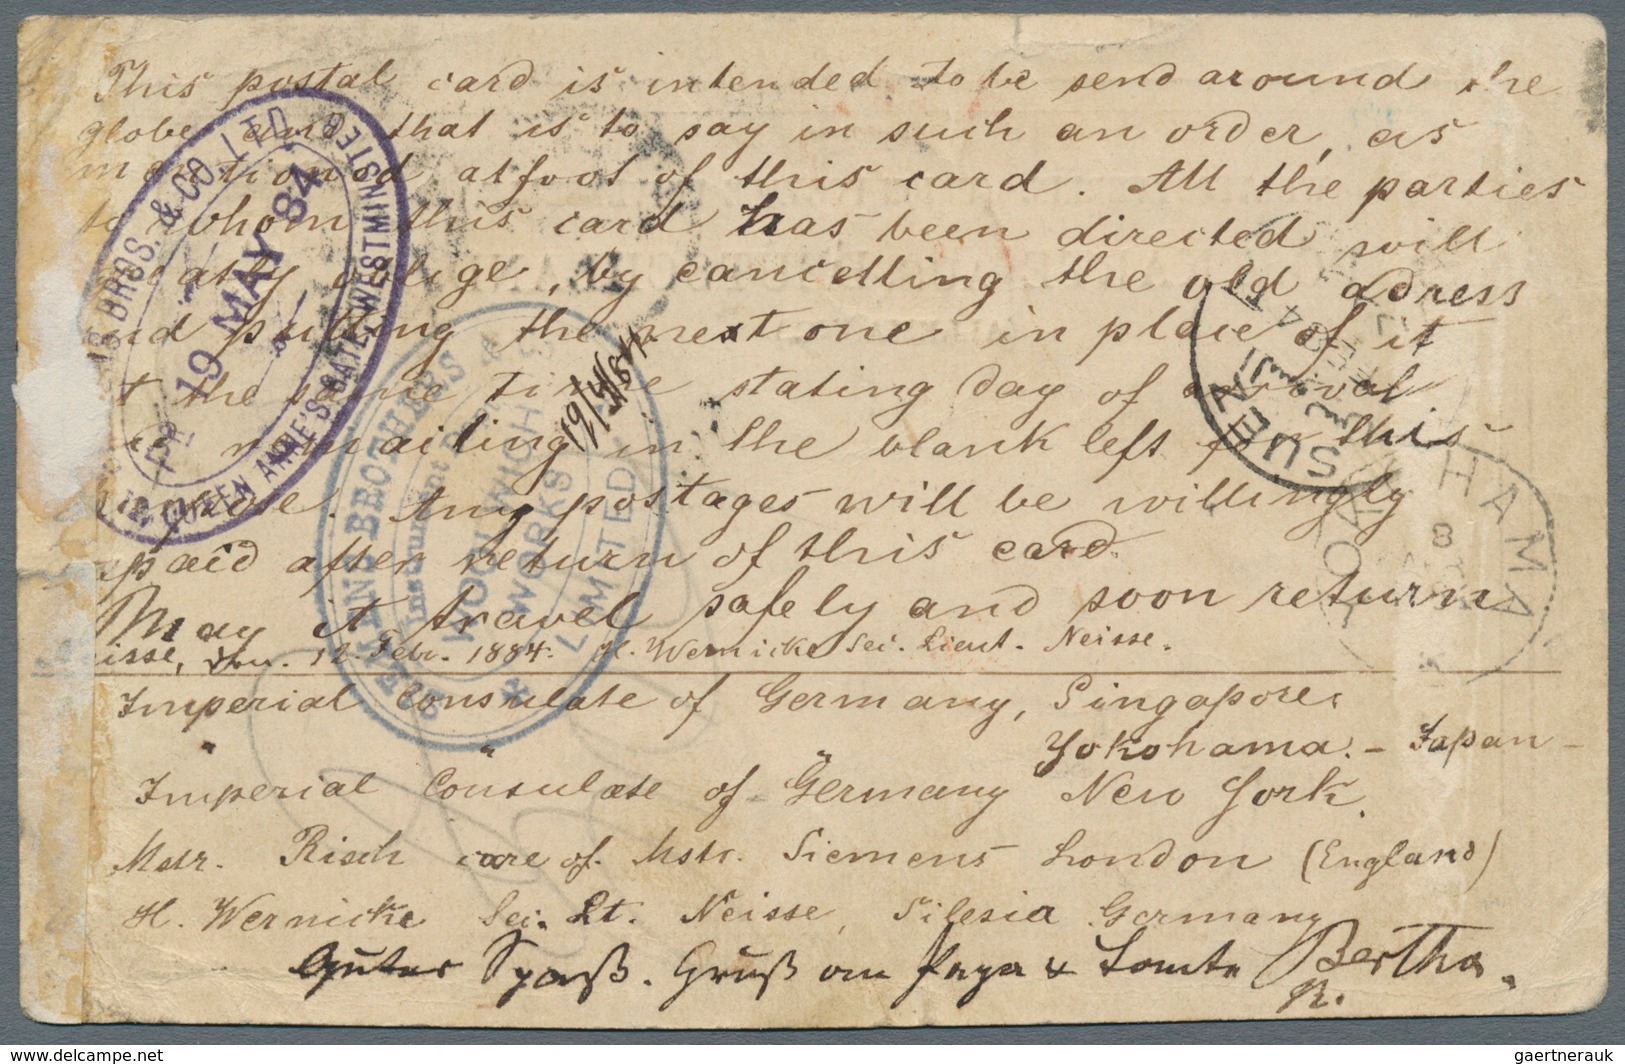 This postal card is intended to be send around the
globe and that is to say in such an order, as
mentioned at foot of this card. All the parties
to whom this card has been directed will
oblige, by cancelling the old adress
putting the next one in place of it
the same time stating day of arrival
remailing in the blank left for this
Any postages will be willingly
paid after return of this card.
May it travel safely and soon return
isse, den. 12. Febr. 1884. H. Wernicke Sec. Lieut. Neisse.
Imperial Consulate of Germany, Singapore.
" " " Yokohama. – Japan –
Imperial Consulate of Germany New York.
Mstr. Risch care of. Mstr. Siemens London (England)
H. Wernicke Sec. Lt. Neisse, Silesia Germany
Guter Spaß. Gruß an Bertha
R.
BROS. & CO LTD
19 MAY 84
12, QUEEN ANNE'S GATE, WESTMINSTER
SIEMENS BROTHERS &
Instrument
WOOLWICH
WORKS
LIMITED
19/5/84
SUEZ
YOKOHAMA
8
www.delcampe.net
gaertnerauk